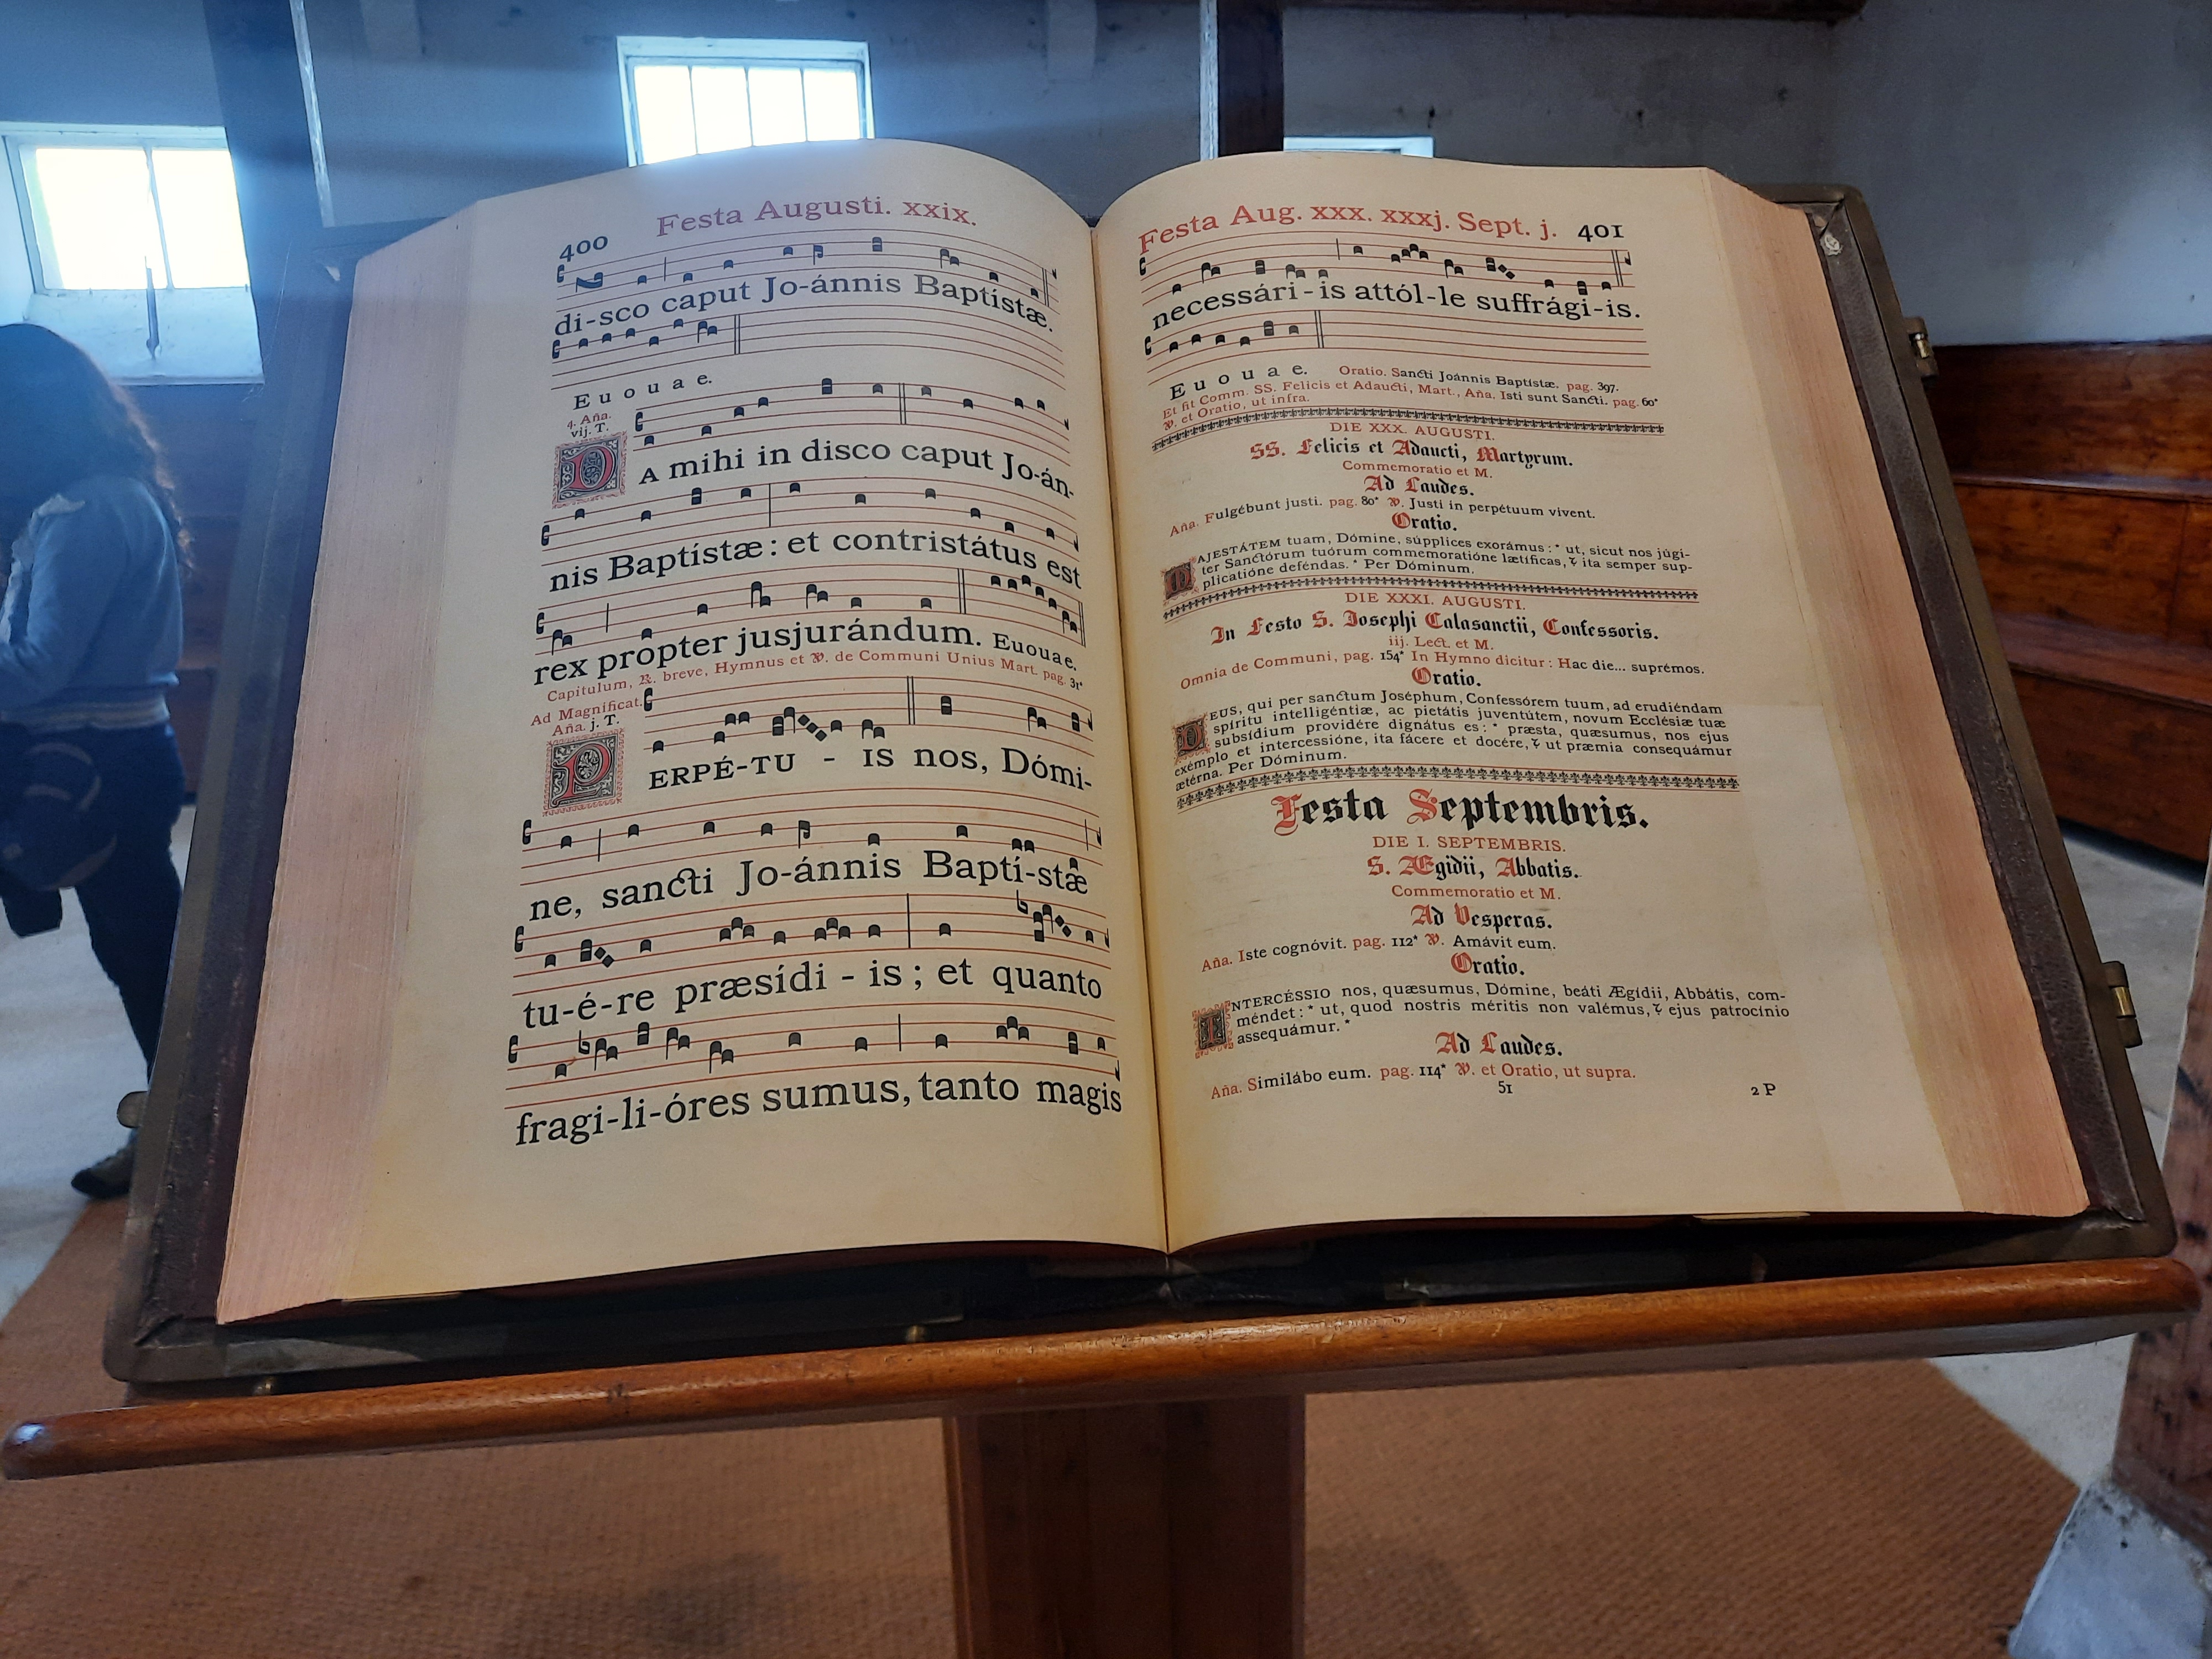 400 Festa Augusti. xxix.
di-sco caput Jo-ánnis Baptístæ.
E u o u a e.
4. Aña.
vij. T.
DA mihi in disco caput Jo-án-
nis Baptístæ: et contristátus est
rex propter jusjurándum. Euouae.
Capitulum, ℟. breve, Hymnus et ℣. de Communi Unius Mart. pag. 31*
Ad Magnificat.
Aña. j. T.
PERPÉ-TU - IS nos, Dómi-
ne, sancti Jo-ánnis Baptí-stæ
tu-é-re præsídi - is; et quanto
fragi-li-óres sumus, tanto magis
Festa Aug. xxx. xxxj. Sept. j. 401
necessári-is attól-le suffrági-is.
E u o u a e. Oratio. Sancti Joánnis Baptístæ. pag. 397.
Et fit Comm. SS. Felicis et Adaucti, Mart., Aña. Isti sunt Sancti. pag. 60*
℣. et Oratio, ut infra.
DIE XXX. AUGUSTI.
SS. Felicis et Adaucti, Martyrum.
Commemoratio et M.
Ad Laudes.
Aña. Fulgébunt justi. pag. 80* ℣. Justi in perpétuum vivent.
Oratio.
MAJESTÁTEM tuam, Dómine, súpplices exorámus: * ut, sicut nos júgi-
ter Sanctórum tuórum commemoratióne lætíficas, ⁊ ita semper sup-
plicatióne deféndas. * Per Dóminum.
DIE XXXI. AUGUSTI.
In Festo S. Josephi Calasanctii, Confessoris.
iij. Lect. et M.
Omnia de Communi, pag. 154* In Hymno dicitur: Hac die... suprémos.
Oratio.
DEUS, qui per sanctum Joséphum, Confessórem tuum, ad erudiéndam
spíritu intelligéntiæ, ac pietátis juventútem, novum Ecclésiæ tuæ
subsídium providére dignátus es: * præsta, quæsumus, nos ejus
exémplo et intercessióne, ita fácere et docére, ⁊ ut præmia consequámur
ætérna. Per Dóminum.
Festa Septembris.
DIE I. SEPTEMBRIS.
S. Ægidii, Abbatis.
Commemoratio et M.
Ad Vesperas.
Aña. Iste cognóvit. pag. 112* ℣. Amávit eum.
Oratio.
INTERCÉSSIO nos, quæsumus, Dómine, beáti Ægídii, Abbátis, com-
méndet: * ut, quod nostris méritis non valémus, ⁊ ejus patrocínio
assequámur. *
Ad Laudes.
Aña. Similábo eum. pag. 114* ℣. et Oratio, ut supra.
51 2 P